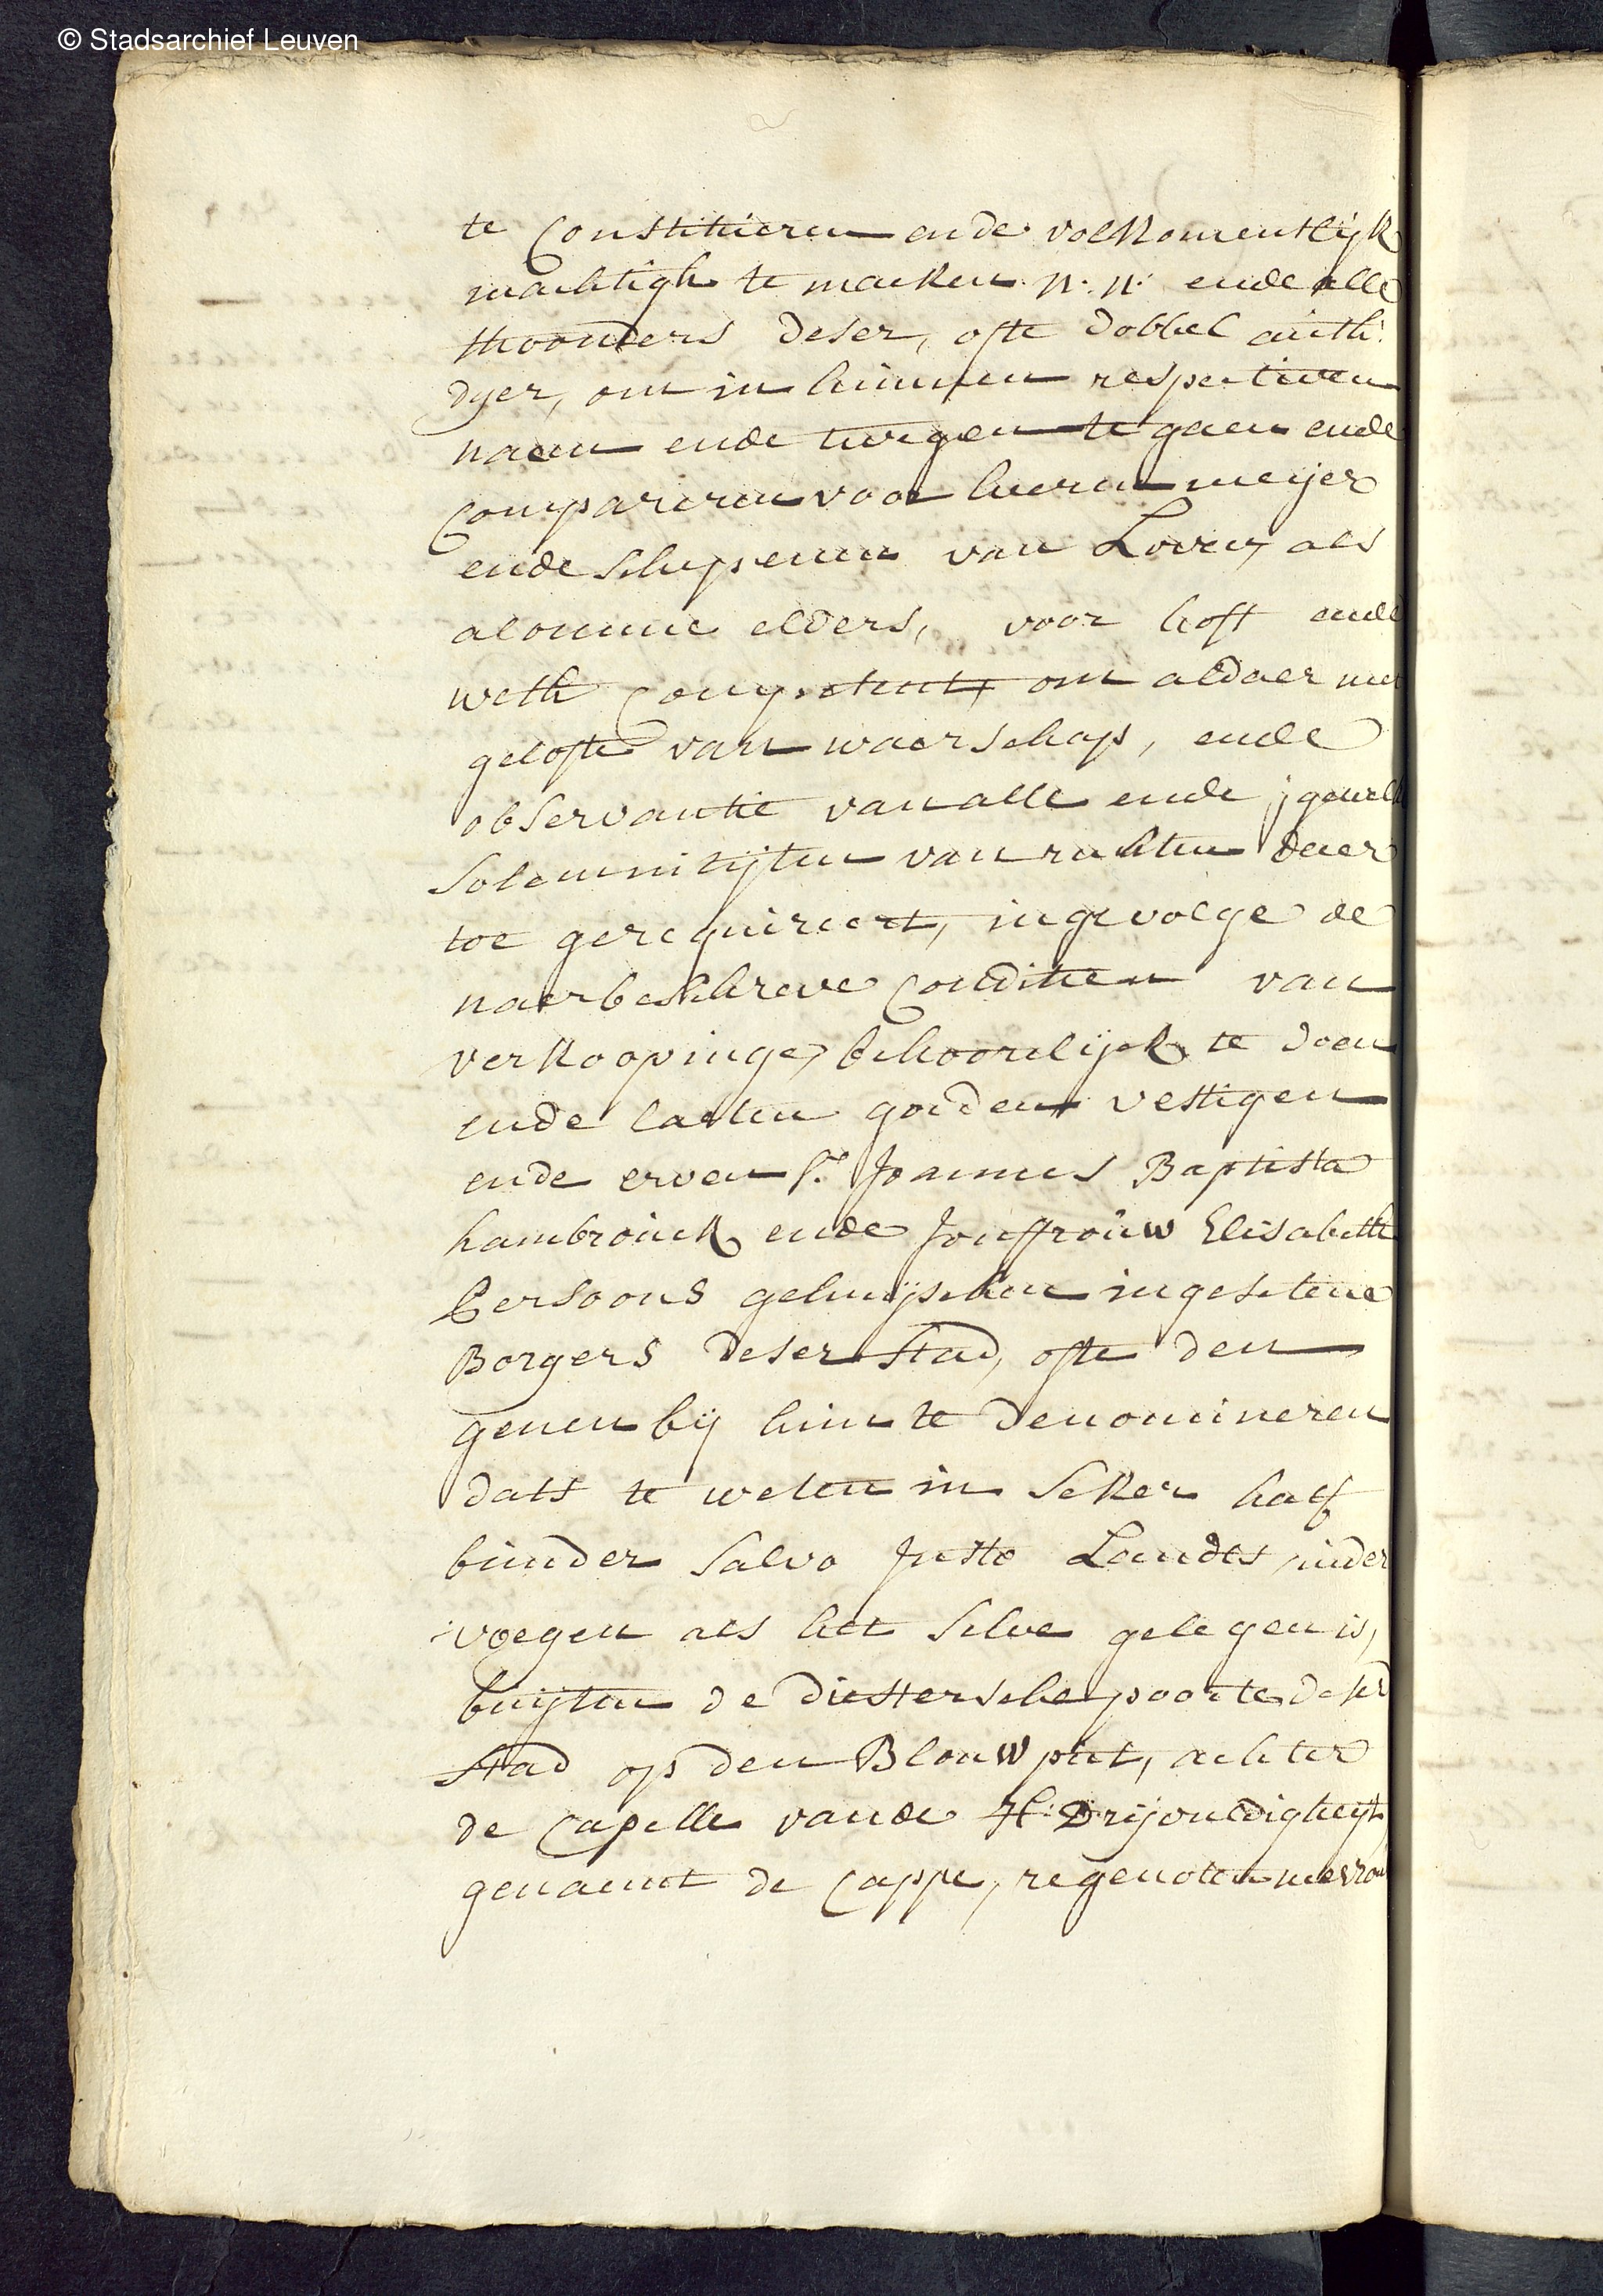 © Stadsarchief Leuven
te Constitueren ende volkomentlijk
machtigh te maeken N: N: ende alle
thoonders deser, ofte dobbel auth:
dyer, om in hunnen respectiven
naem ende wegen te gaen ende
Compareren voor heeren meijer
ende schepenen van Loven, als
alomme elders, voor hoft ende
weth Competent, om aldaer met
gelofte van waerschap, ende
observantie van alle ende jgewel
solemnitijten van rechten daer
toe gerequireert, ingevolge de
naerbeschreve Conditien van
verkoopinge, behoorelijck te doen
ende laeten goeden vestigen
ende erven Sr. Joannes Baptista
hambrouck ende Jouffrouw Elisabeth
Persoons gehuijschen ingesetene
Borgers deser stad, ofte den
genen bij hun te denomineren
dats te weten in seker half
bunder salvo justo Landts, inder
voegen als het selve gelegen is,
buijten de diestersche poorte deser
stad op den Blouwput, achter
de Capelle vande H: Drijvuldigheijt,
genaemt de Cappe, regenoten mevrou